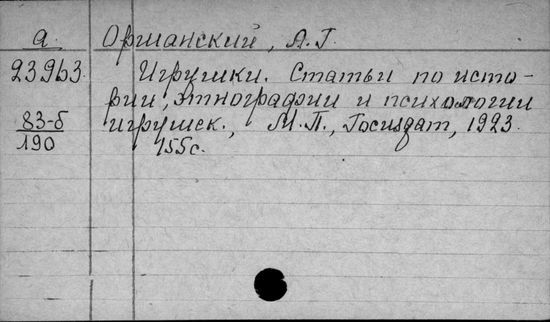 а. Оршанский, А.Г.
23963 Игрушки. Статьи по исто-
рии, этнографии и психологии
83-б игрушек., М.П., Госиздат, 1923.
190 155с.